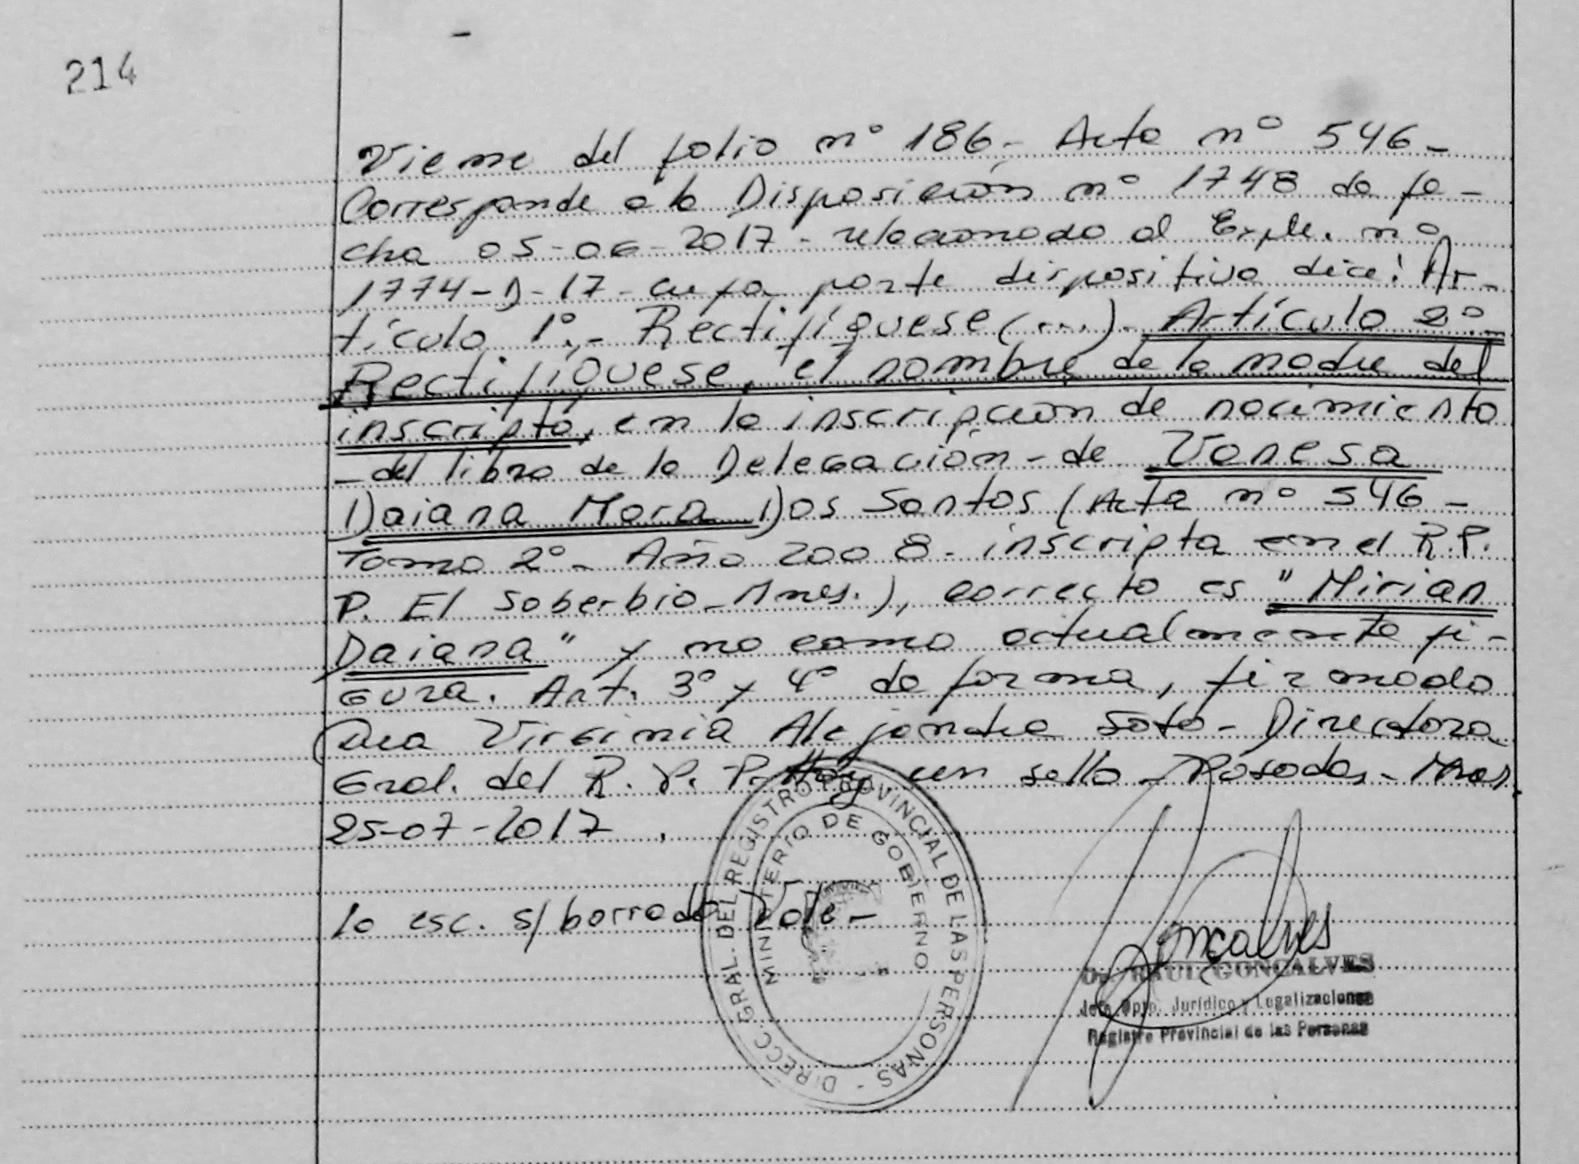 214
Viene del folio nº 186.- Acta nº 546 -
Corresponde a la Disposición nº 1748 de fe-
cha 05-06-2017 - relacionado al Expte. nº
1774-D-17 - cuya parte dispositiva dice: Ar-
tículo 1º.- Rectifíquese (...). Artículo 2º
Rectifíquese, el nombre de la madre del
inscripto, en la inscripción de nacimiento
- del libro de la Delegación - de Vanesa
Daiana Mora Dos Santos (Acta nº 546 -
Tomo 2º - Año 2008 - inscripta en el R.P.
P. El Soberbio - Mnes.), correcto es "Mirian
Daiana" y no como actualmente fi-
gura. Art. 3º y 4º de forma, firmado
Dra Virginia Alejandra Soto - Directora
Gral. del R. P. P. Hay un sello - Posadas - Mnes
25-07-2017.
lo esc. s/ borrado Vale -
DIRECC. GRAL. DEL REGISTRO PROVINCIAL DE LAS PERSONAS -
MINISTERIO DE GOBIERNO
Goncalves
Dr. RAUL GONCALVES
Jefe Dpto. Jurídico y Legalizaciones
Registro Provincial de las Personas